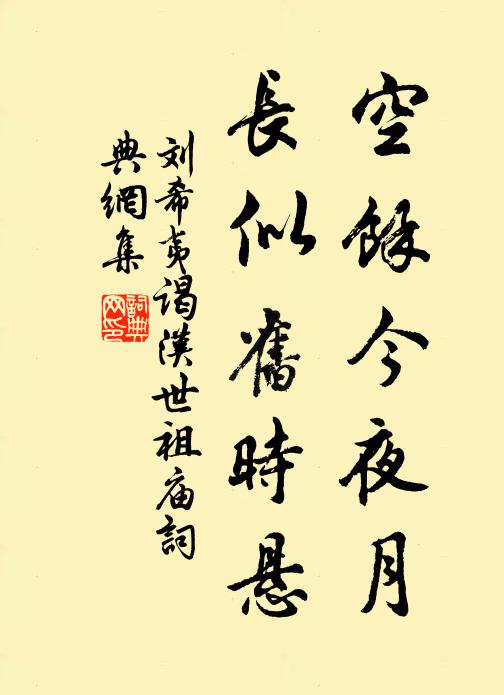 空餘今夜月
長似舊時悬
刘希夷谒漢世祖庙詞
典網集
詞典网印